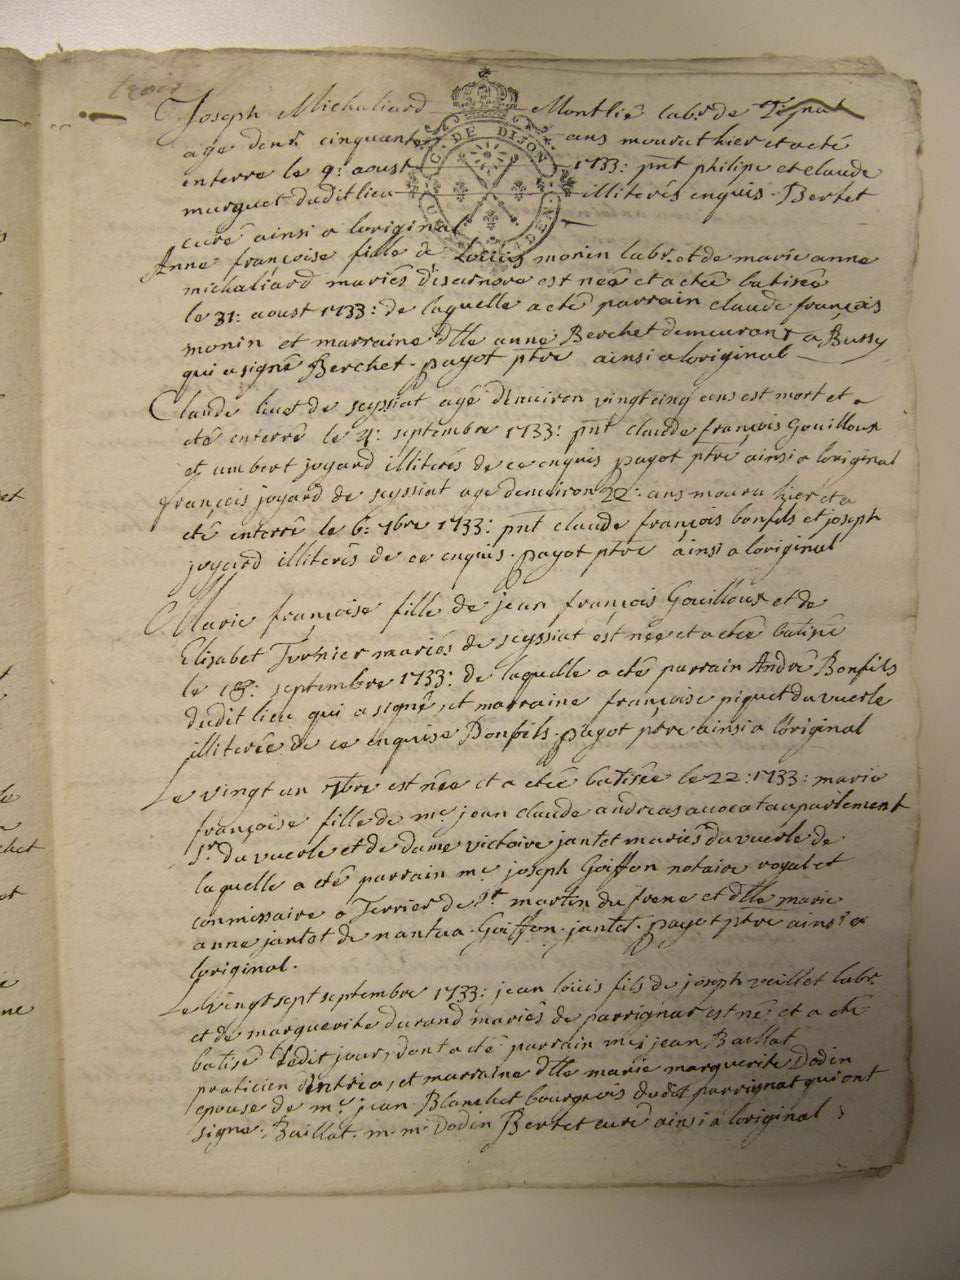 trois
Joseph Michaliard Montlié labr. de
age denr. cinquante ans mourut hier et a eté
G. DE DIJON
enterre le 9: aoust 1733: pnt philipe et claude
murguet dudit lieu illiterés enquis. Bertet
curé ainsi a loriginal
Anne françoise fille de Loüis monin labr. et de marie anne
michaliard mariés disarnore est neé et a eteé batiseé
le 31: aoust 1733: de laquelle a eté parrain claude françois
monin et marraine dlle anne Berchet demeurant a Bussy
qui a signé Berchet. payot ptre ainsi a loriginal
Claude de seyssiat agé denviron vingt cinq ans est mort et a
eté enterré le 4: septembre 1733: pnt claude françois Gouilloux
et umbert joyard illiterés de ce enquis payot ptre ainsi a loriginal
françois joyard de seyssiat age denviron 22: ans mouru hier et a
eté enterré le 6: 7bre 1733: pnt claude françois bonfils et joseph
joyard illiterés de ce enquis. payot ptre ainsi a loriginal
Marie françoise fille de jean françois Gouilloux et de
Elisabet Turnier mariés de seyssiat est neé et a eteé batiseé
le 18: septembre 1733: de laquelle a eté parrain André Bonfils
dudit lieu qui a signé, et marraine françoise piquet du vuerle
illitereé de ce enquise Bonfils. payot ptre ainsi a loriginal
Le vingt un 7bre est neé et a eteé batiseé le 22: 1733: marie
françoise fille de me. jean claude andreas avocat au parlement
Sr. du vuerle et de dame victoire jantet mariés du vuerle de
laquelle a eté parrain me. joseph Goiffon notaire royal et
commissaire a Terrier de St martin du frene et dlle marie
anne jantet de nantua. Goiffon. jantet. payot ptre ainsi a
loriginal.
Le vingt sept septembre 1733: jean loüis fils de joseph veillet labr.
et de marguerite durand mariés de parrignat est né et a eté
batisé ledit jour, dont a eté parrain me. jean Baillat
praticien dintria, et marraine dlle marie marguerite Dodin
epouse de me. jean Blanchet bourgeois dudit parrignat qui ont
signe. Baillat. m. m. Dodin Bertet curé ainsi a loriginal